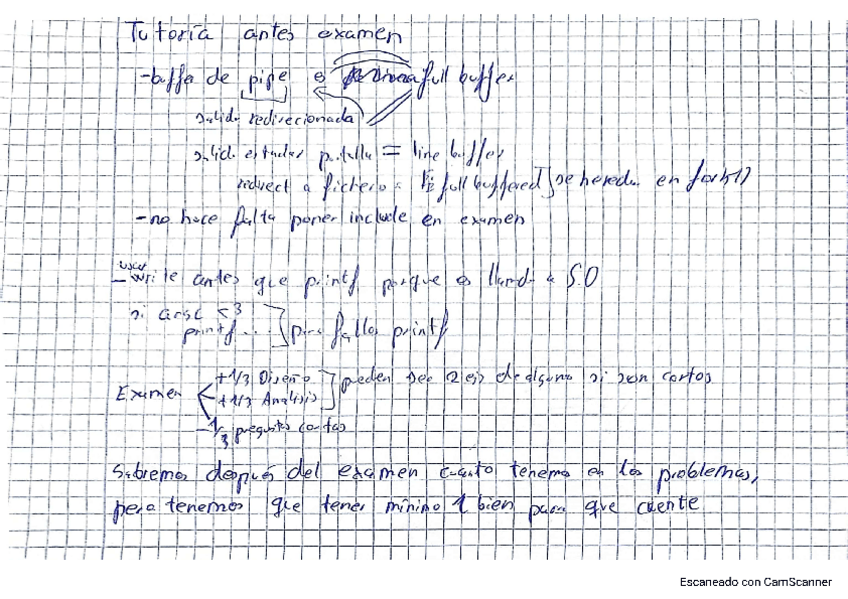 Tutoría antes examen
-buffer de pipe es full buffer
salida redirecionada
salida estandar pantalla = line buffer
redirect a fichero = full buffered ] se hereda en fork()
-no hace falta poner include en examen
- usar write antes que printf porque es llamada a S.O
si argc < 3
printf... ] para fallos printf
Examen
+1/3 Diseño
+1/3 Análisis ] pueden ser 2 ejs de alguno si son cortos
- 1/3 preguntas cortas
Sabremos después del examen cuanto tenemos en los problemas,
pero tenemos que tener mínimo 1 bien para que cuente
Escaneado con CamScanner